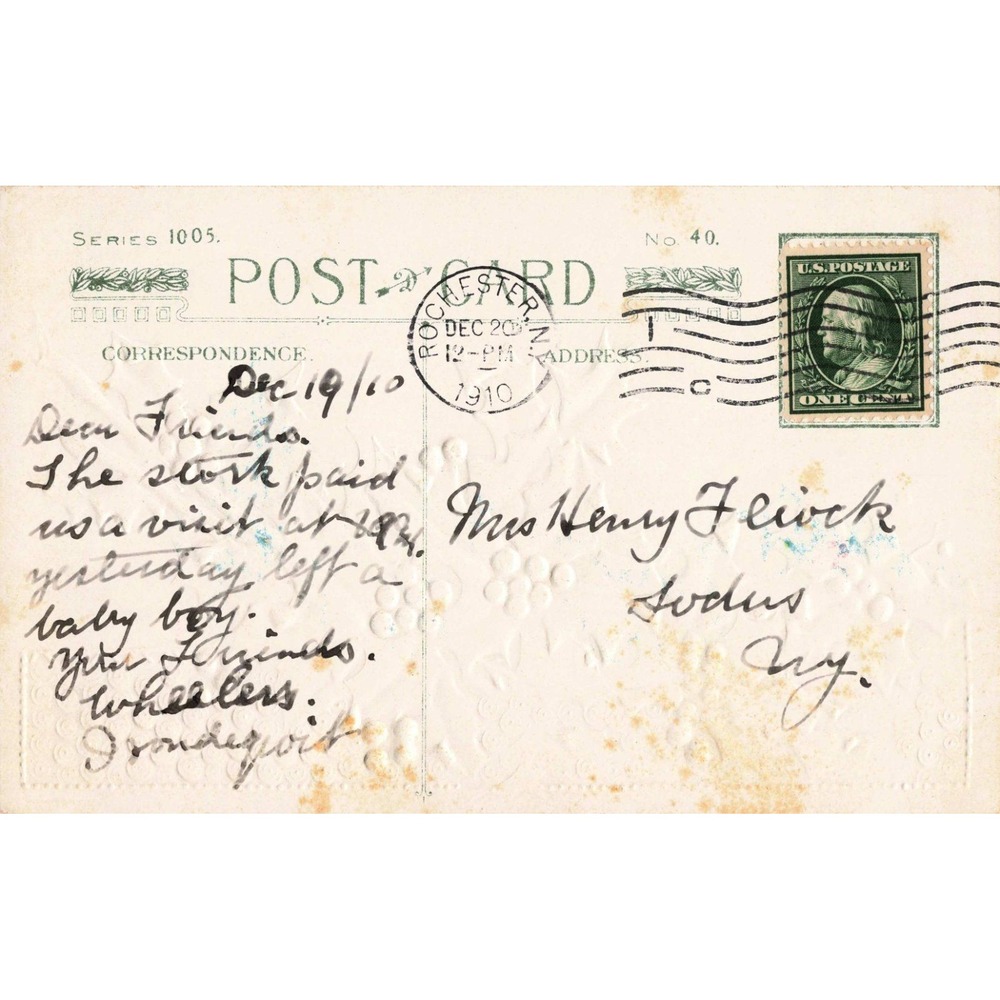 SERIES 1005.
No. 40.
POST CARD
CORRESPONDENCE.
ADDRESS.
ROCHESTER, N.Y.
DEC 20
12-PM
1910
T
C
U.S. POSTAGE
ONE CENT
Dec 19/10
Dear Friends.
The stork paid
us a visit at
yesterday left a
baby boy.
Your Friends.
Wheelers.
Irondequoit
Mrs Henry Flock
Sodus
Ny.